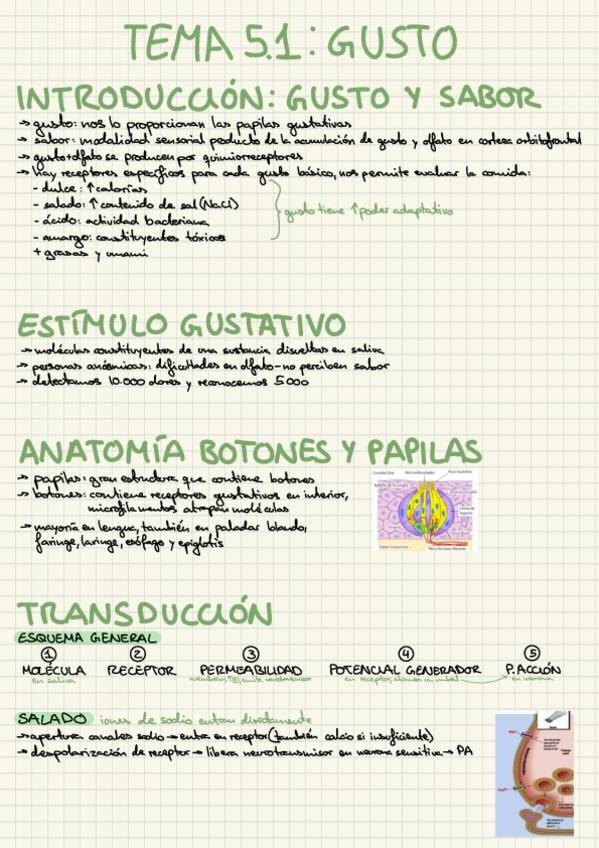 TEMA 5.1: GUSTO
INTRODUCCIÓN: GUSTO Y SABOR
→ gusto: nos lo proporcionan las papilas gustativas
→ sabor: modalidad sensorial producto de la acumulación de gusto y olfato en corteza orbitofrontal
→ gusto+olfato se producen por quimiorreceptores
→ hay receptores específicos para cada gusto básico, nos permite evaluar la comida:
- dulce: ↑ calorías
- salado: ↑ contenido de sal (NaCl)
- ácido: actividad bacteriana
- amargo: constituyentes tóxicos
+ grasas y umami
gusto tiene ↑ poder adaptativo
ESTÍMULO GUSTATIVO
→ moléculas constituyentes de una sustancia disueltas en saliva
→ personas anósmicas: dificultades en olfato - no perciben sabor
→ detectamos 10.000 olores y reconocemos 5000
ANATOMÍA BOTONES Y PAPILAS
→ papilas: gran estructura que contiene botones
→ botones: contiene receptores gustativos en interior,
microfilamentos atrapan moléculas
→ mayoría en lengua, también en paladar blando,
faringe, laringe, esófago y epiglotis
Cavidad Oral
Microvellosidades
Poro Gustativo
Tejido Conjuntivo
Fibra Nerviosa Aferente
TRANSDUCCIÓN
ESQUEMA GENERAL
① ② ③ ④ ⑤
MOLÉCULA RECEPTOR PERMEABILIDAD POTENCIAL GENERADOR P.ACCIÓN
en saliva en receptor, alcanza un umbral en neurona
SALADO iones de sodio entran directamente
→ apertura canales sodio → entra en receptor (también calcio si insuficiente)
→ despolarización de receptor → libera neurotransmisor en neurona sensitiva → PA